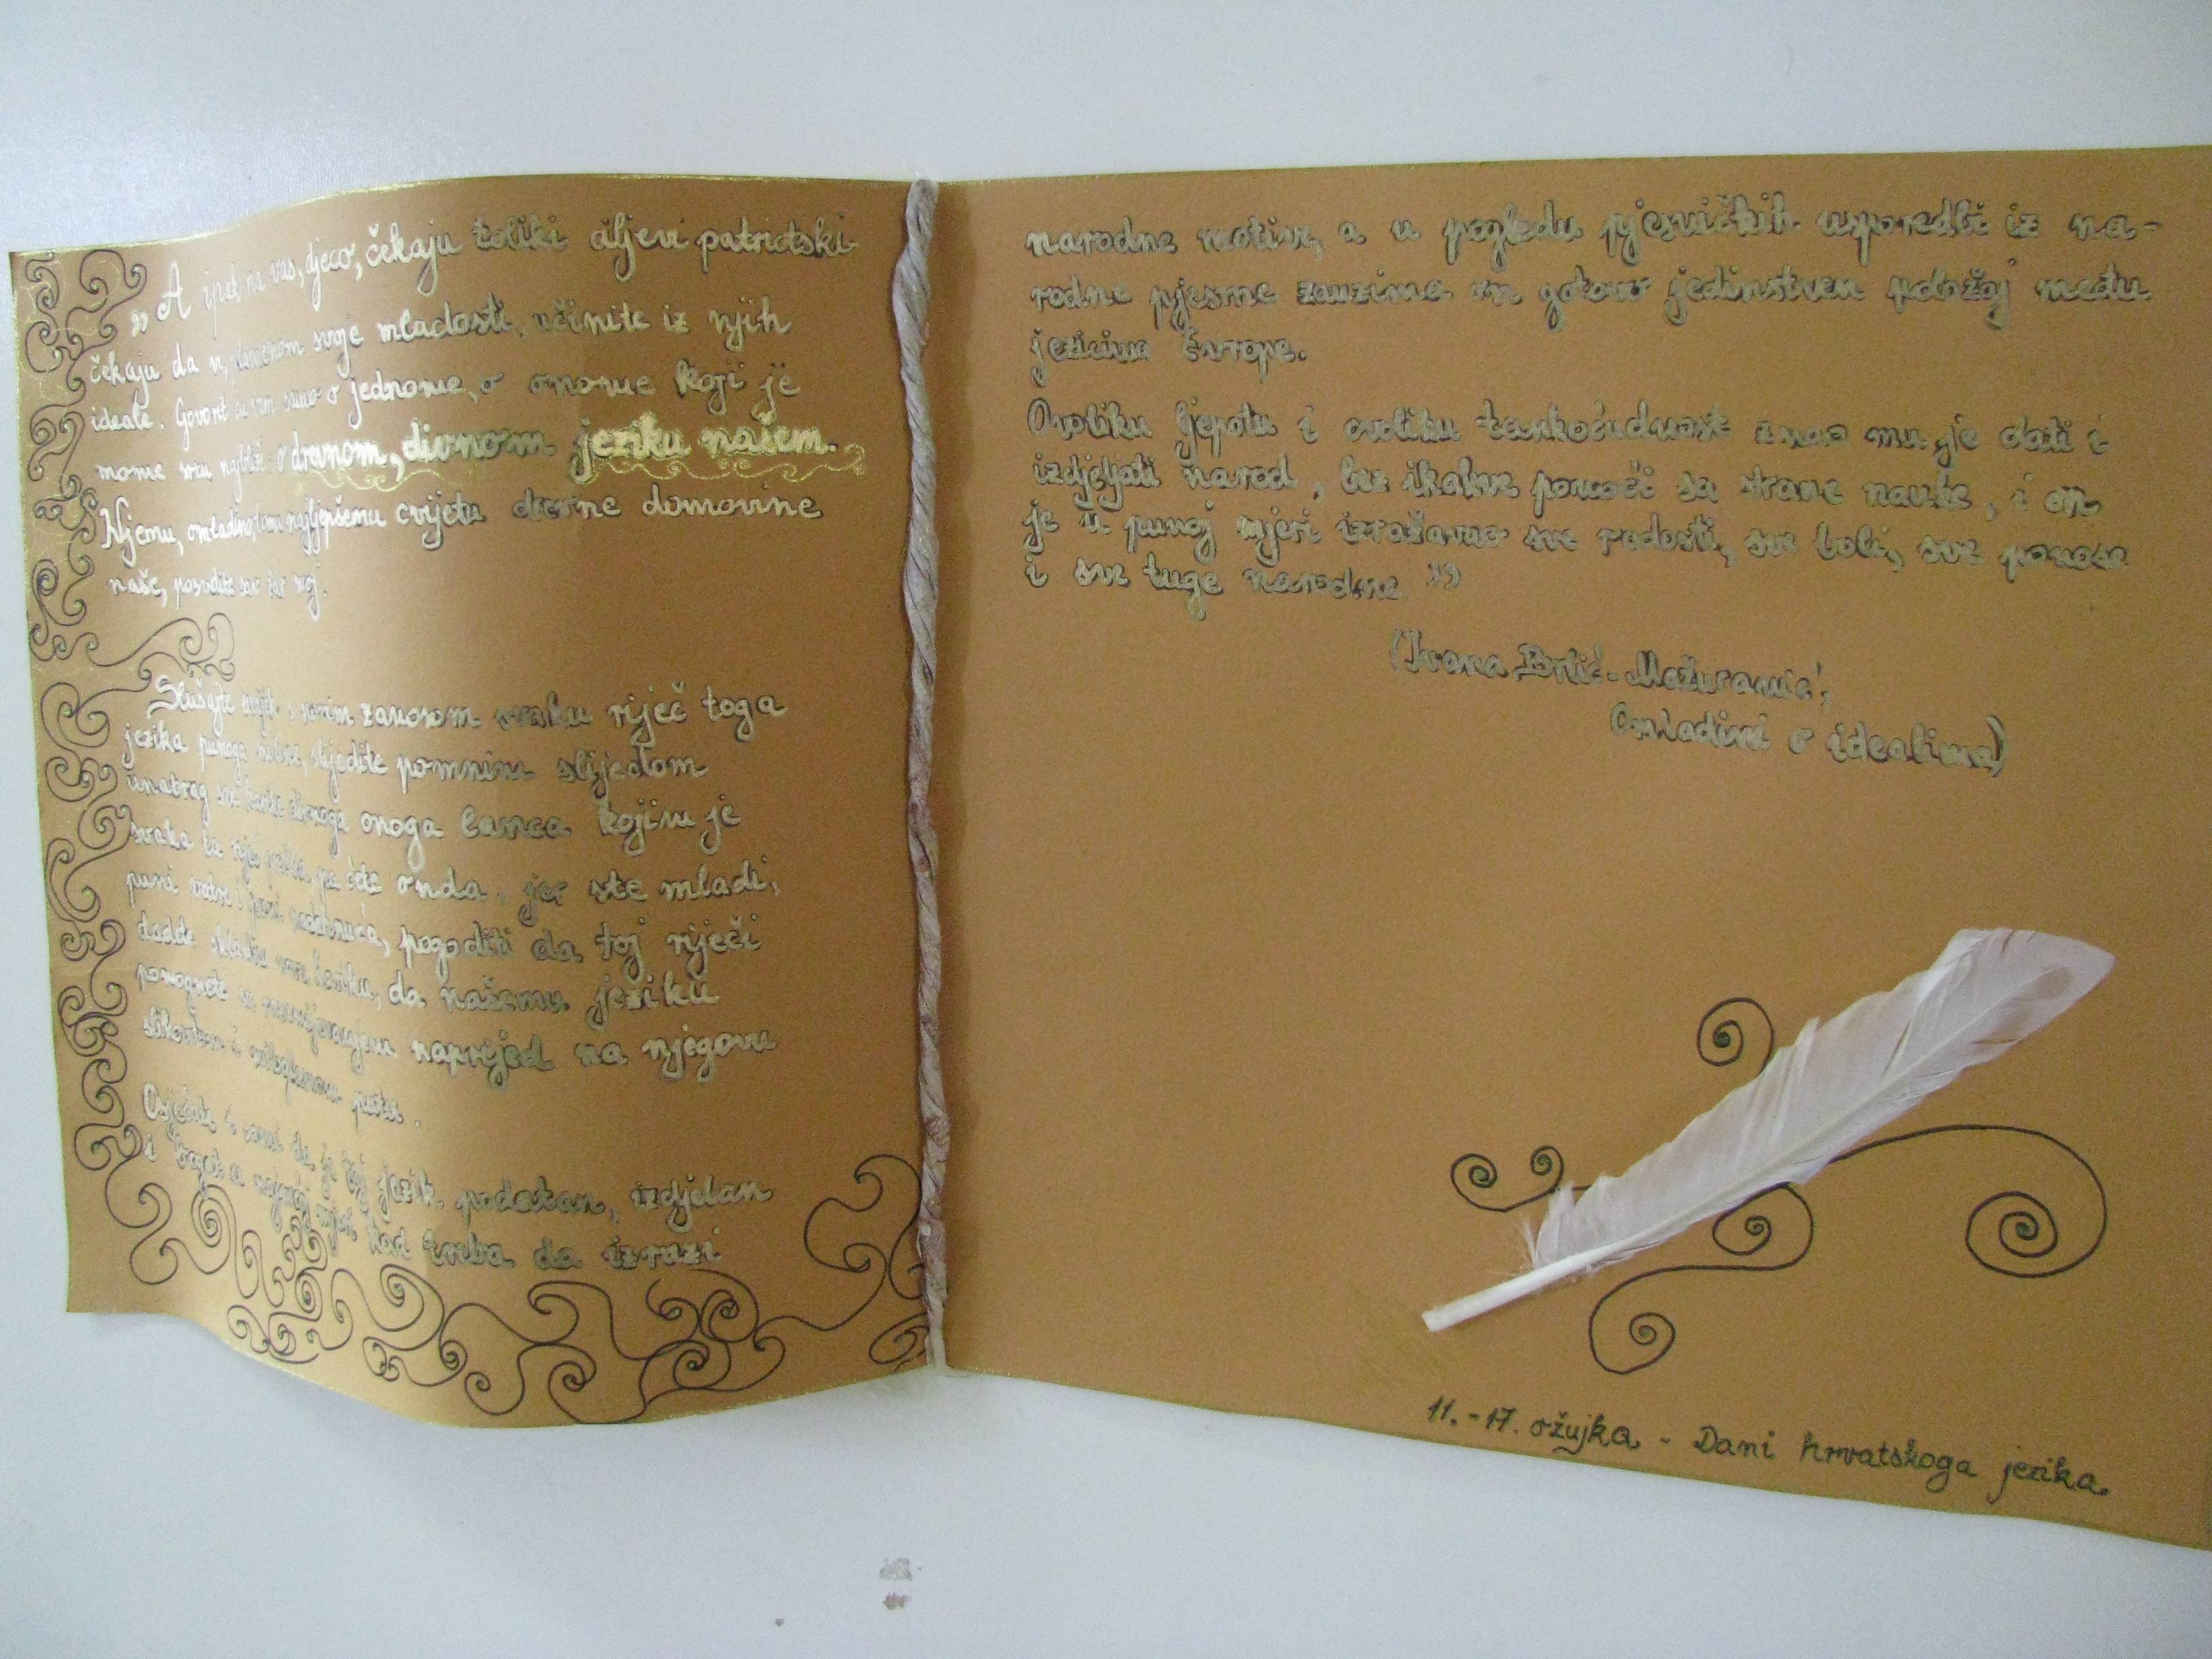 „A ipak na vas, djeco, čekaju toliki ciljevi patriotski
čekaju da vi, plamenom svoje mladosti, učinite iz njih
ideale. Govorit ću vam samo o jednome, o onome koji je
mome srcu najbliži o drevnom, divnom jeziku našem.
Njemu, omladino, tomu najljepšemu cvijetu drevne domovine
naše, posvetite sav žar svoj.
Slušajte uvijek s novim zanosom svaku riječ toga
jezika punoga miline, slijedite pomnim slijedom
unatrag sve karike divnoga onoga lanca kojim je
svaka ta riječ pa ćete onda, jer ste mladi,
puni vatre i puni nadahnuća, pogoditi da toj riječi
dadete skladnu novu kariku, da našemu jeziku
pomognete s razumijevanjem naprijed na njegovu
slikovitom i milopunom putu.
Osjećate i sami da je taj jezik podatan, izdjelan
i bogat u najvećoj mjeri kad treba da izrazi
narodne motive, a u pogledu pjesničkih usporedbi iz na-
rodne pjesme zauzima on gotovo jedinstven položaj među
jezicima Europe.
Ovoliku ljepotu i ovoliku tankoćudnost znao mu je dati i
izdjeljati narod, bez ikakve pomoći sa strane nauke, i on
je u punoj mjeri izražavao sve radosti, sve boli, sve ponose
i sve tuge narodne”
(Ivana Brlić-Mažuranić,
Omladini o idealima)
11.-17. ožujka - Dani hrvatskoga jezika